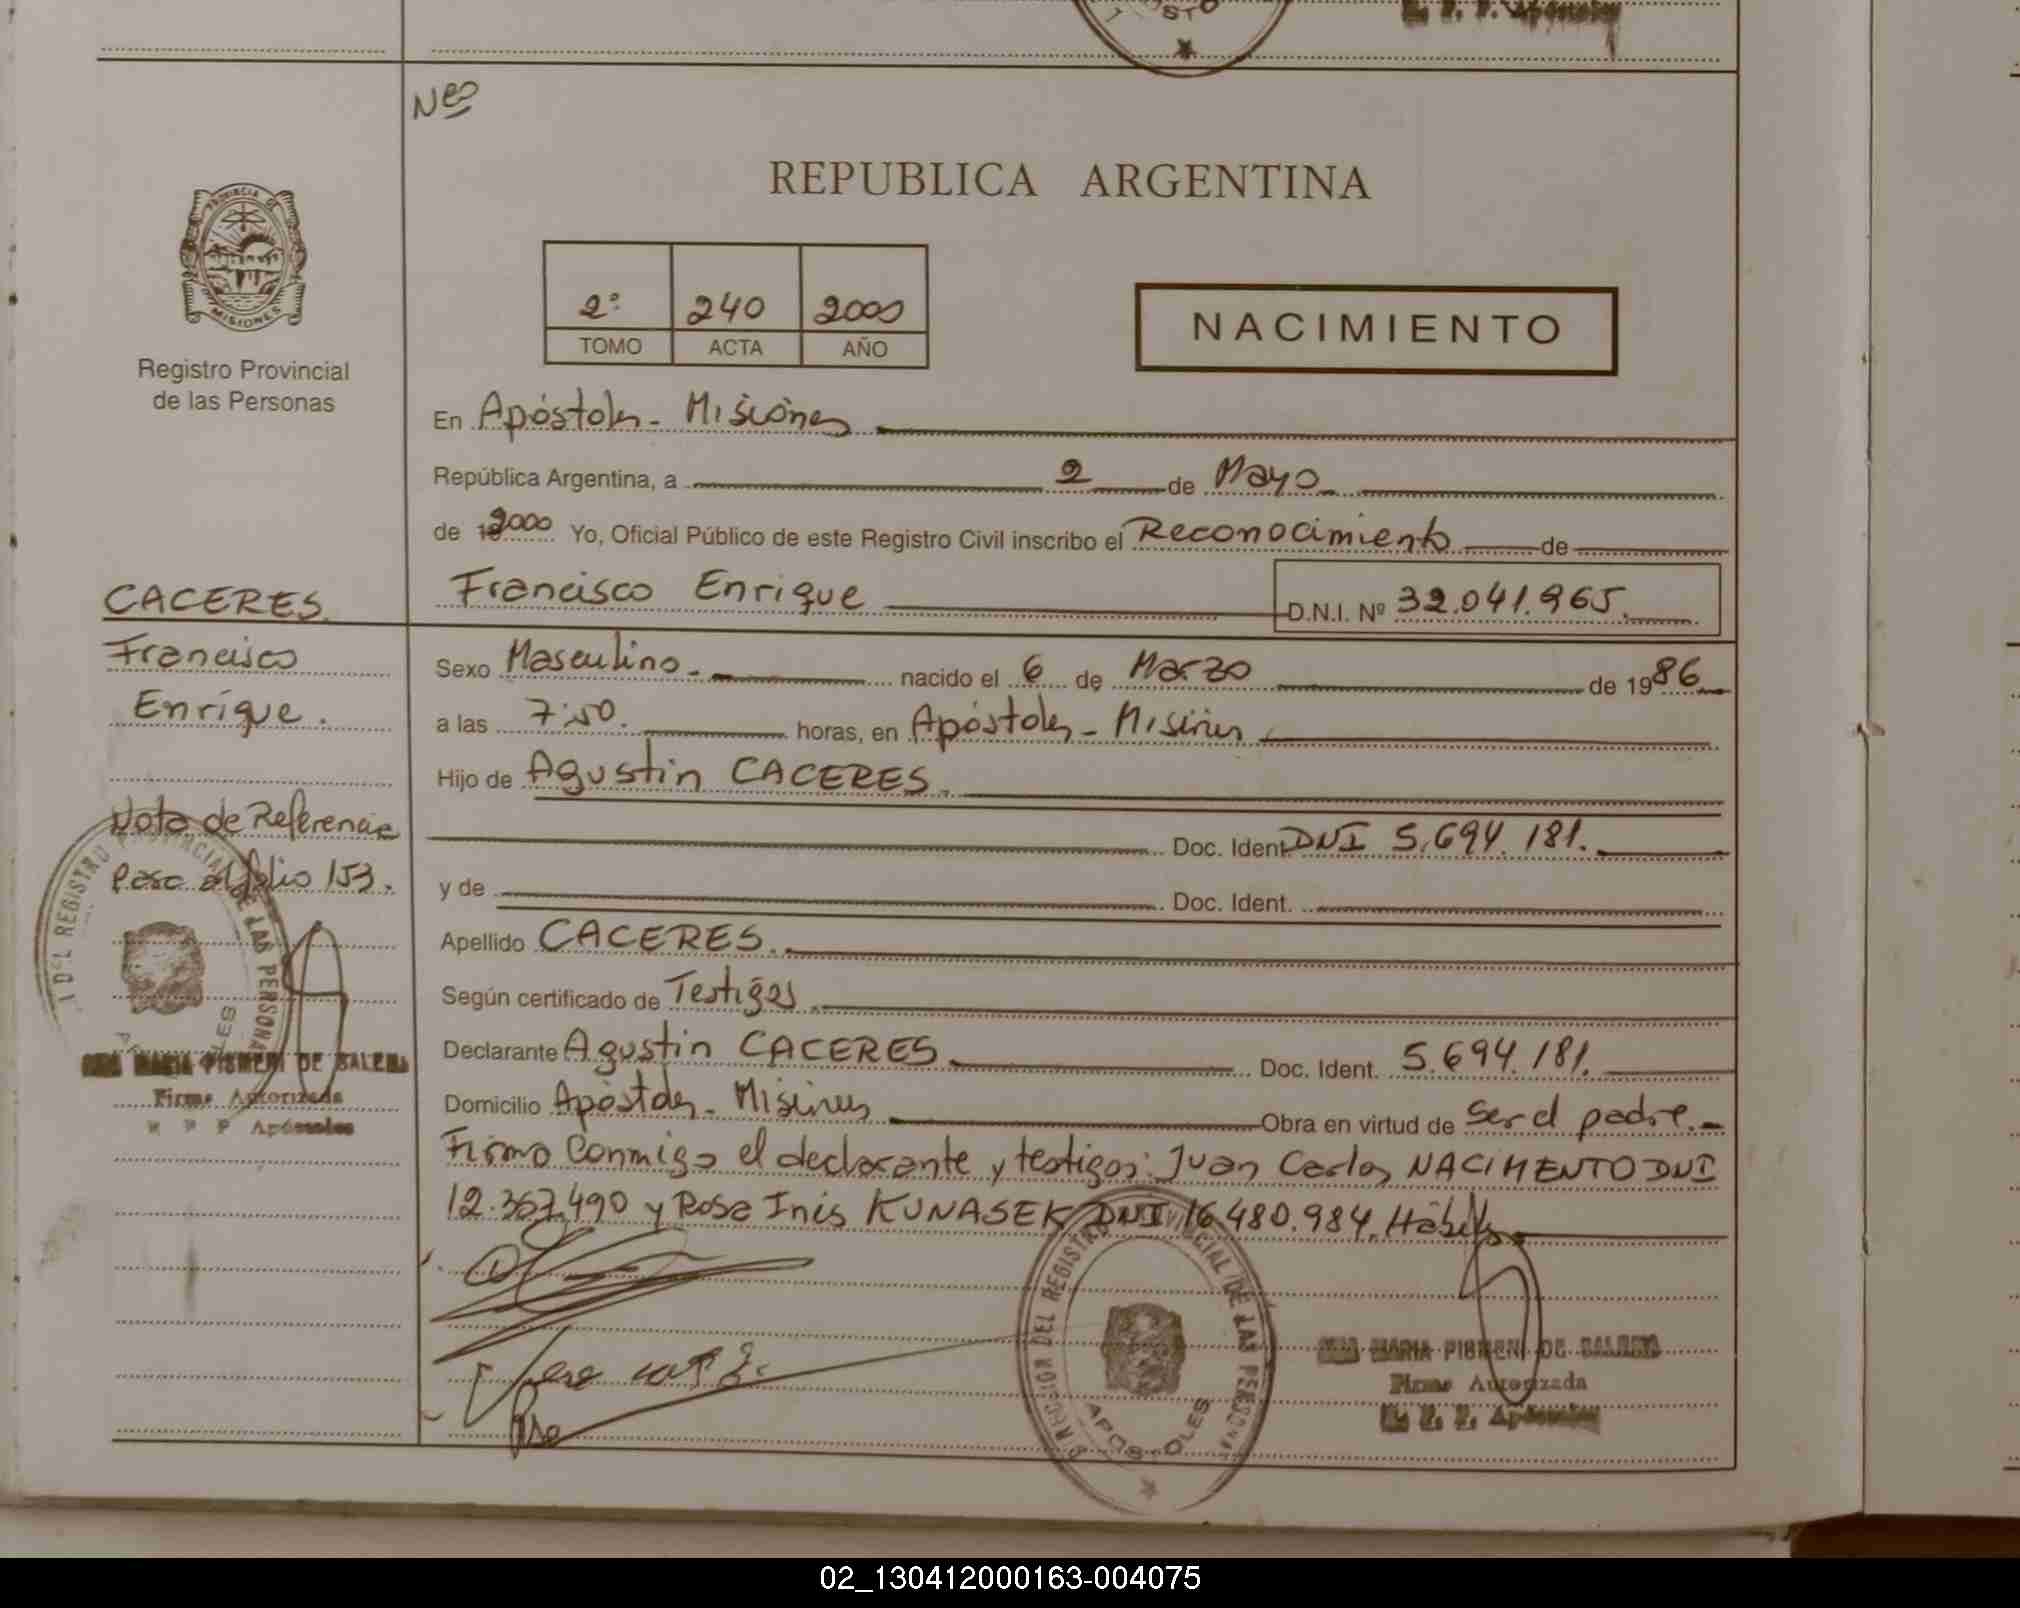 Neo
REPUBLICA ARGENTINA
PROVINCIA DE
MISIONES
Registro Provincial
de las Personas
2° 240 2000
TOMO ACTA AÑO
NACIMIENTO
En Apóstoles - Misiones
República Argentina, a 2 de Mayo
de 2000 Yo, Oficial Público de este Registro Civil inscribo el Reconocimiento de
Francisco Enrique D.N.I. Nº 32.041.965.
CACERES
Francisco
Enrique.
Nota de Referencia
Pasa al folio 153.
Sexo Masculino. nacido el 6 de Marzo de 1986
a las 7:50. horas, en Apóstoles - Misiones
Hijo de Agustin CACERES.
Doc. Ident. DNI 5.694.181.
y de Doc. Ident.
Apellido CACERES.
Según certificado de Testigos
Declarante Agustin CACERES Doc. Ident. 5.694.181.
Domicilio Apóstoles - Misiones Obra en virtud de Ser el padre.
Firma Conmigo el declarante y testigos: Juan Carlos NACIMENTO DNI
12.367.490 y Rosa Inés KUNASEK DNI 16.480.984. Hábiles
DEL REGISTRO PROVINCIAL DE LAS PERSONAS
MARIA PISMENI DE SALERA
Firma Autorizada
R P P Apóstoles
DIRECCION DEL REGISTRO PROVINCIAL DE LAS PERSONAS
APOSTOLES
MARIA PISMENI DE
Firma Autorizada
R. P. P. Apóstoles
R. P. P. Apóstoles
02_130412000163-004075